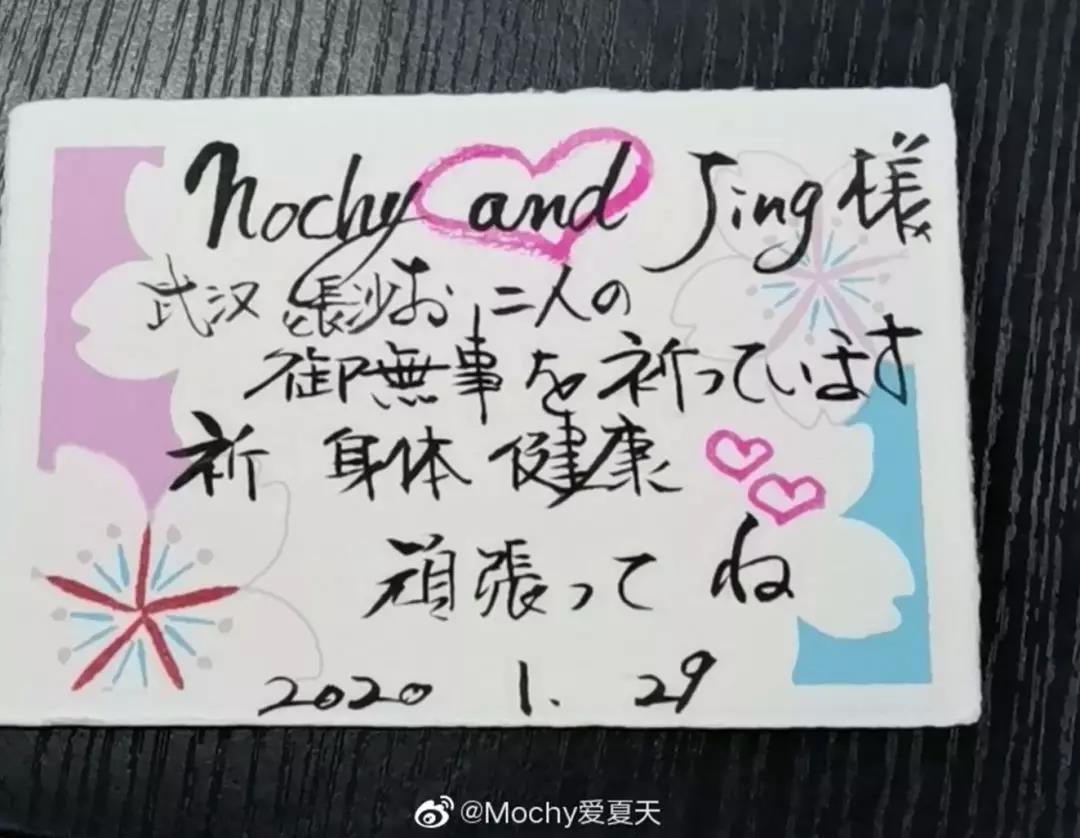 Mochy and Jing 様
武汉と張沙お二人の
御無事を祈っています
祈 身体 健康
頑張って ね
2020 1. 29
@Mochy爱夏天